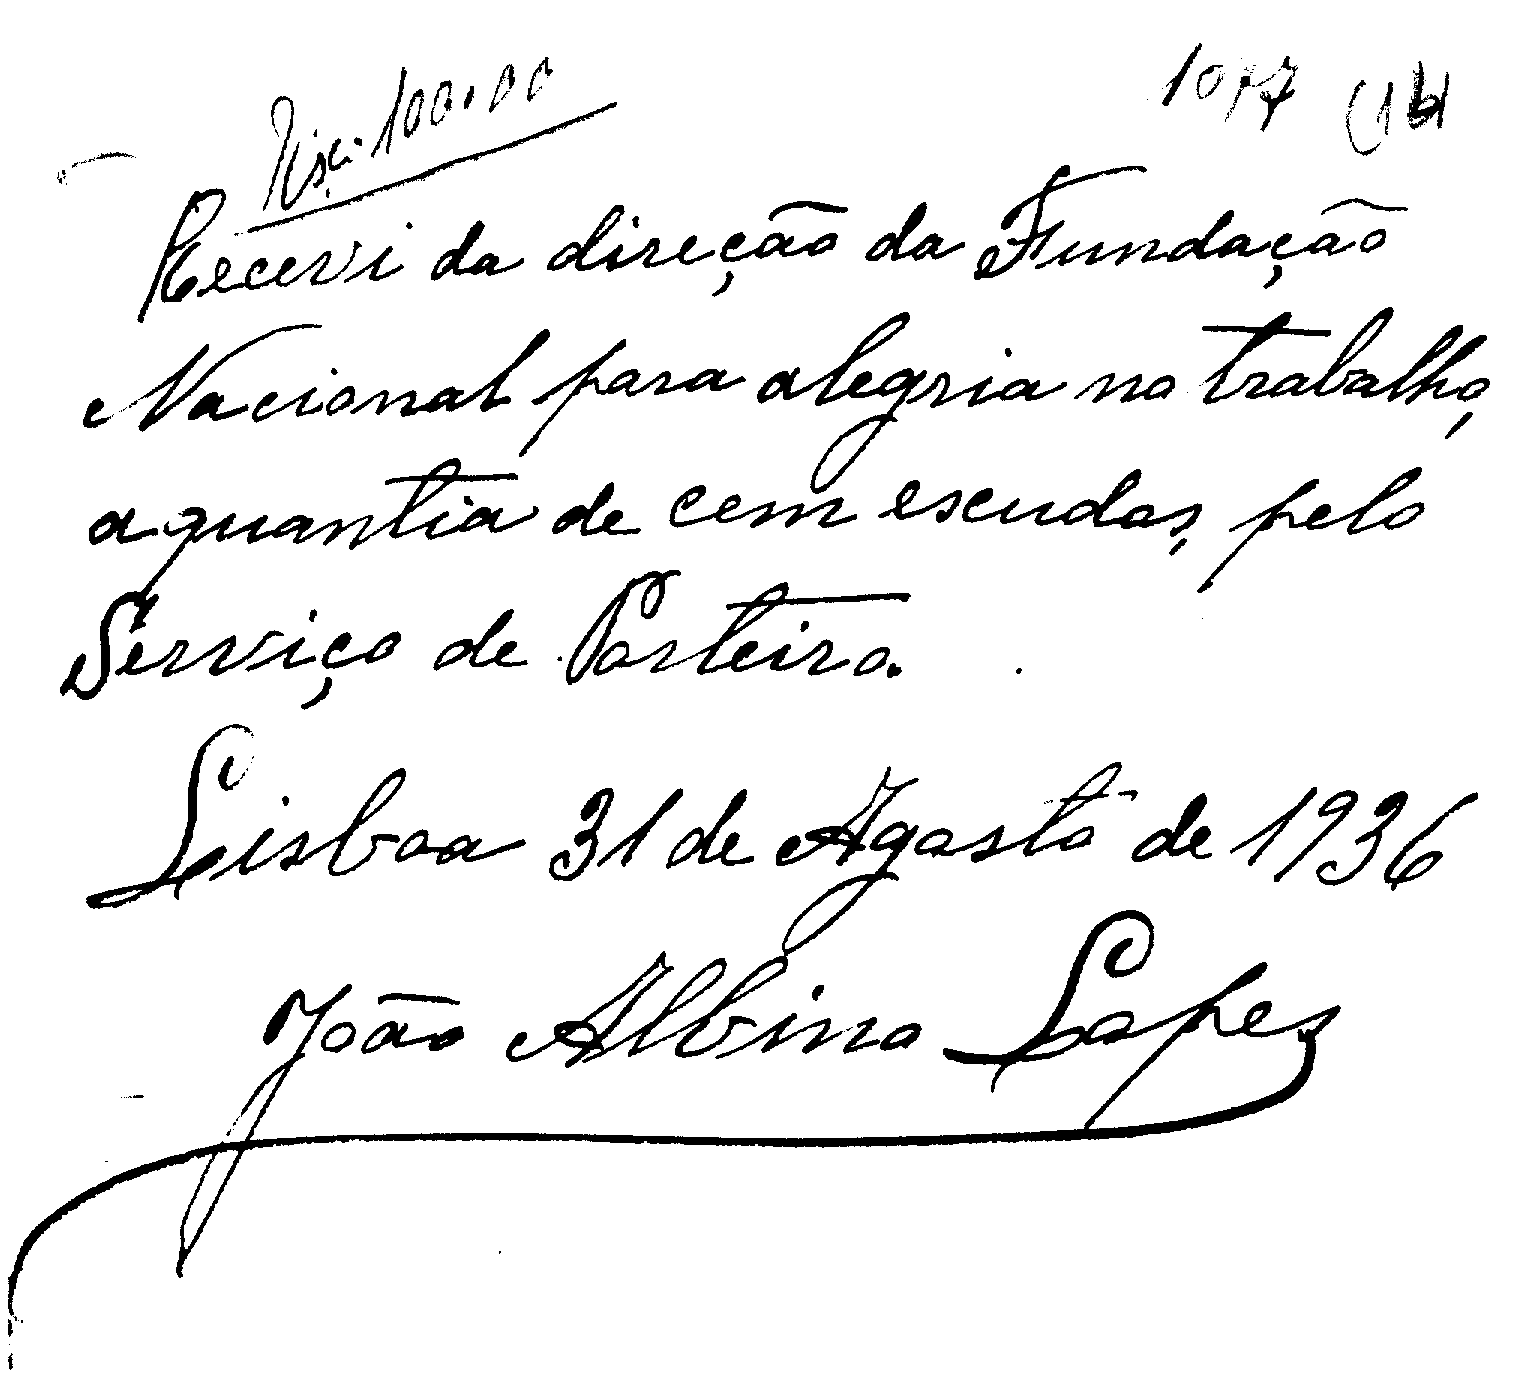 100.00
1077 (16)
Recevi da direção da Fundação
Nacional para alegria no trabalho,
a quantia de cem escudos, pelo
Serviço de Porteiro.
Lisboa 31 de Agosto de 1936
João Albino Lopes